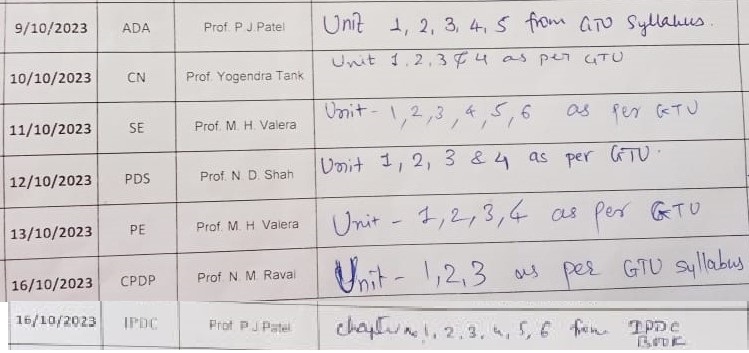 9/10/2023 ADA Prof. P J Patel Unit 1, 2, 3, 4, 5 from GTU Syllabus.
10/10/2023 CN Prof. Yogendra Tank Unit 1, 2, 3 & 4 as per GTU
11/10/2023 SE Prof. M. H. Valera Unit - 1, 2, 3, 4, 5, 6 as per GTU
12/10/2023 PDS Prof. N. D. Shah Unit 1, 2, 3 & 4 as per GTU.
13/10/2023 PE Prof. M. H. Valera Unit - 1, 2, 3, 4 as per GTU
16/10/2023 CPDP Prof. N. M. Raval Unit - 1, 2, 3 as per GTU syllabus
16/10/2023 IPDC Prof. P J Patel 1, 2, 3, 4, 5, 6 from IPDC
BOOK